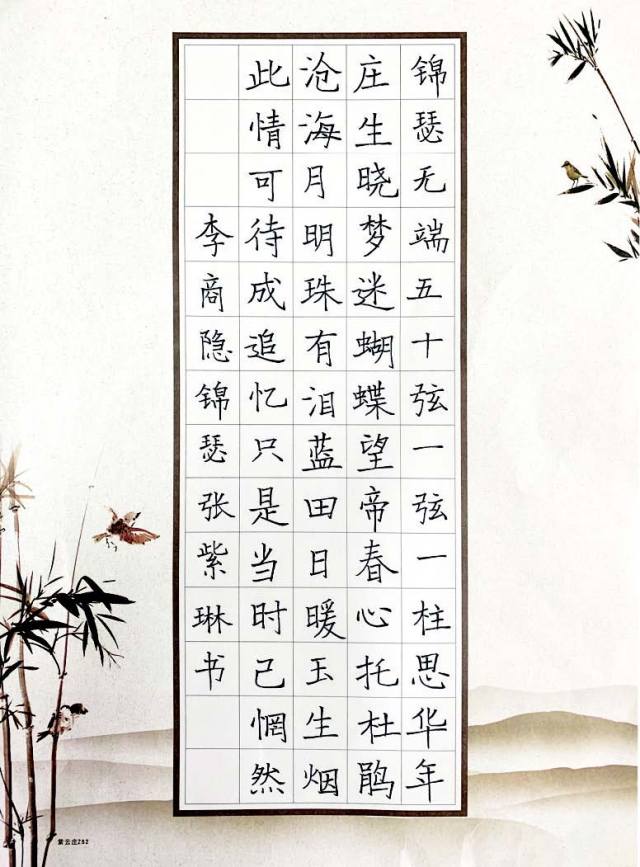 锦瑟无端五十弦一弦一柱思华年
庄生晓梦迷蝴蝶望帝春心托杜鹃
沧海月明珠有泪蓝田日暖玉生烟
此情可待成追忆只是当时已惘然
李商隐锦瑟张紫琳书
紫云庄Z82